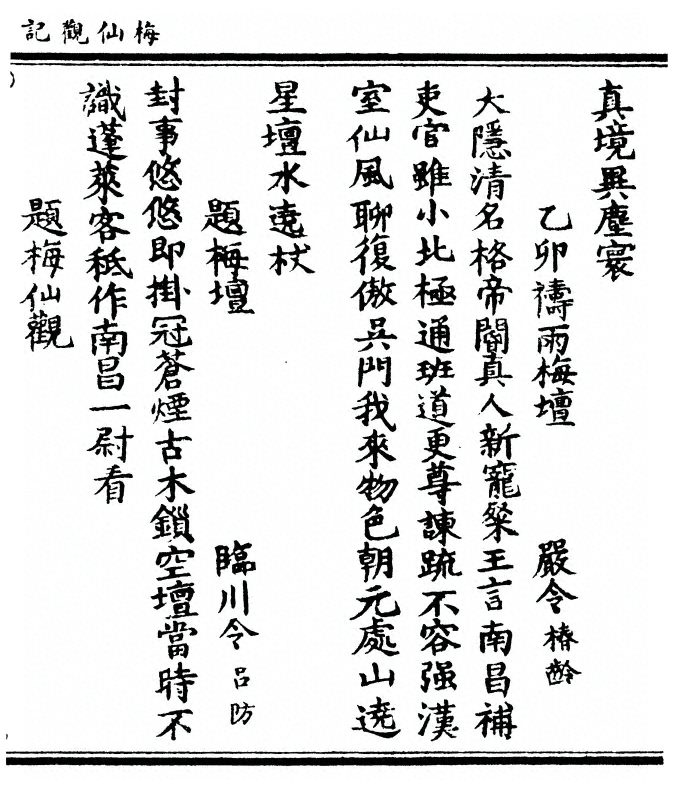 梅仙觀記
真境異塵寰
乙卯禱雨梅壇 嚴令椿齡
大隱清名格帝閽真人新寵粲王言南昌補
吏官雖小北極通班道更尊諫疏不容强漢
室仙風聊復傲吳門我來物色朝元處山遶
星壇水遶杖
題梅壇 臨川令呂防
封事悠悠即掛冠蒼煙古木鎖空壇當時不
識蓬萊客秖作南昌一尉看
題梅仙觀